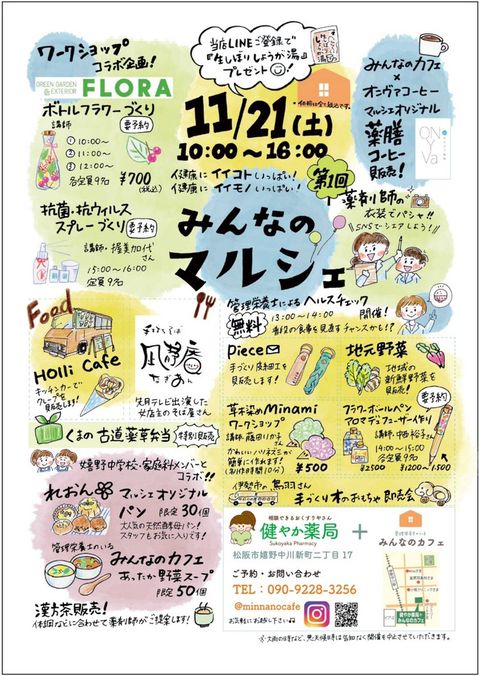 ワークショップ
コラボ企画!
GREEN GARDEN
@EXTERIOR
FLORA
ボトルフラワーづくり
講師
要予約
① 10:00〜
② 11:00〜
③ 12:00〜
各定員9名
¥700
(税込)
抗菌・抗ウィルス
スプレーづくり
要予約
講師・渥美加代さん
15:00〜16:00
定員9名
当店LINEご登録で
『生しぼりしょうが湯』
プレゼント!
*価格は全て税込です。
11/21(土)
10:00〜16:00
健康にイイコトいっぱい!
健康にイイモノいっぱい!
第1回
みんなの
マルシェ
みんなのカフェ
×
オンヴァコーヒー
マルシェオリジナル
薬膳
コーヒー
販売!
ON
Ya
薬剤師の
衣装でパシャ!!
SNSでシェアしよう!
管理栄養士によるヘルスチェック
開催!
無料
13:00〜14:00
普段の食事を見直すチャンスかも!?
Food
Holli Cafe
キッチンカーで
クレープを
販売します!
凪
先月テレビ出演した
女店主のそば屋さん
くまの古道薬草弁当
特別販売
嬉野中学校・家庭科メンバーと
コラボ!!
れおん
マルシェオリジナル
パン
限定30個
大人気の天然酵母パン!
スタッフもお気に入りです!
管理栄養士のいる
みんなのカフェ
あったか野菜スープ
限定50個
漢方茶販売!
体調などに合わせて薬剤師がご提案します!
Piece
手づくり万華鏡を
販売します!
地元野菜
地域の
新鮮野菜を
販売!
草木染めMinami
ワークショップ
講師・藤田りかさん
かわいいハリネズミが
簡単に作れます!
¥500
要予約
フラワーボールペン
アロマディフューザー作り
講師・中西裕子さん
14:00〜15:00
各定員9名
¥2500
¥1200〜1,500
伊勢市の鳥羽さん
手づくり木のおもちゃ即売会
相談できるおくすりやさん
健やか薬局
Sukoyaka Pharmacy
+
みんなのカフェ
松阪市嬉野中川新町二丁目17
ご予約・お問い合わせ
TEL:090-9228-3256
@minnanocafe
お気軽にお越し下さい♪
健やか薬局+
みんなのカフェ
※大雨の時など、悪天候時は告知なく開催を中止させていただきます。